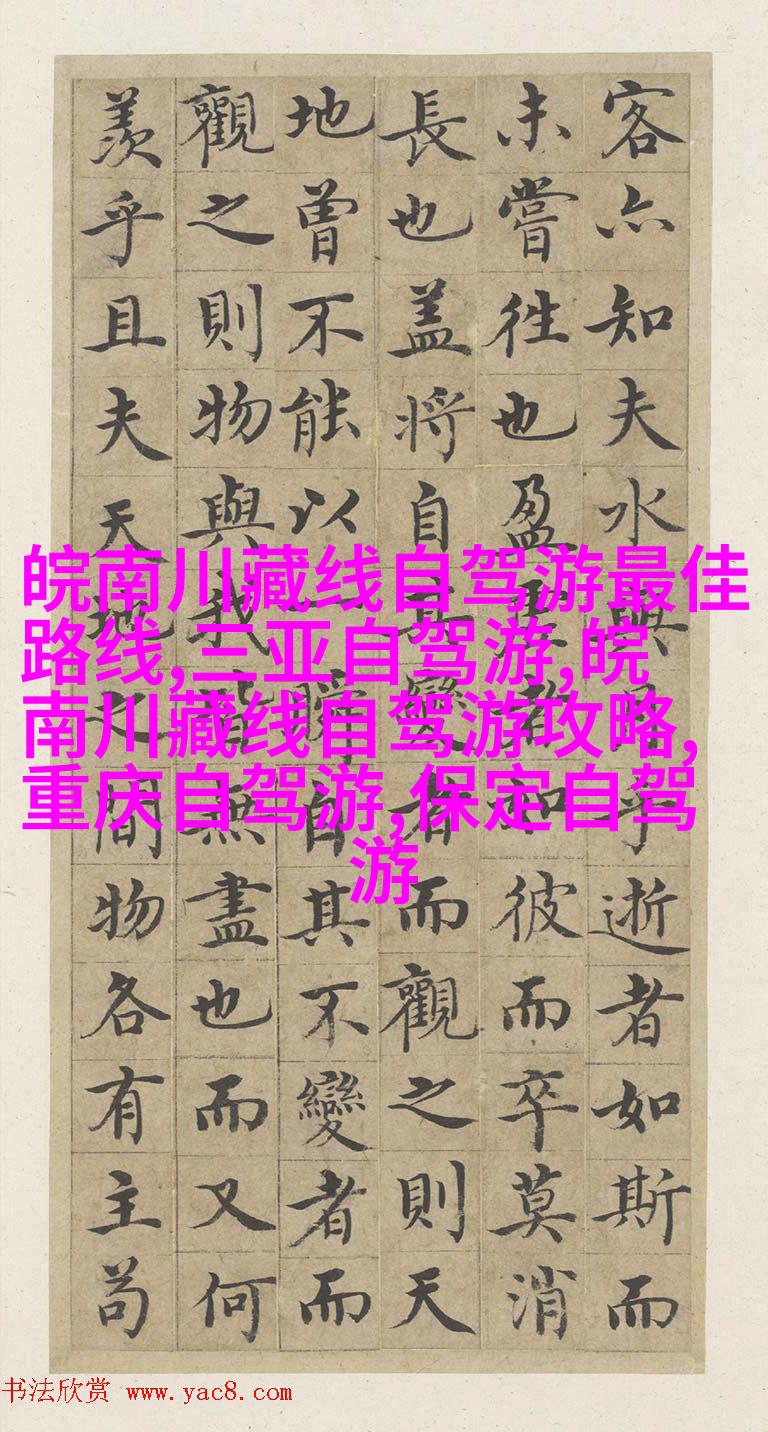 客亦知夫水與月乎逝者如斯而
未嘗往也盈虛者如彼而卒莫消
長也盖將自其變者而觀之則天
地曾不能以一瞬自其不變者而
觀之則物與我皆無盡也而又何
羨乎且夫天地之間物各有主苟
皖南川藏线自驾游最佳
路线,三亚自驾游,皖
南川藏线自驾游攻略,
重庆自驾游,保定自驾
游
书法欣赏 www.yac8.com